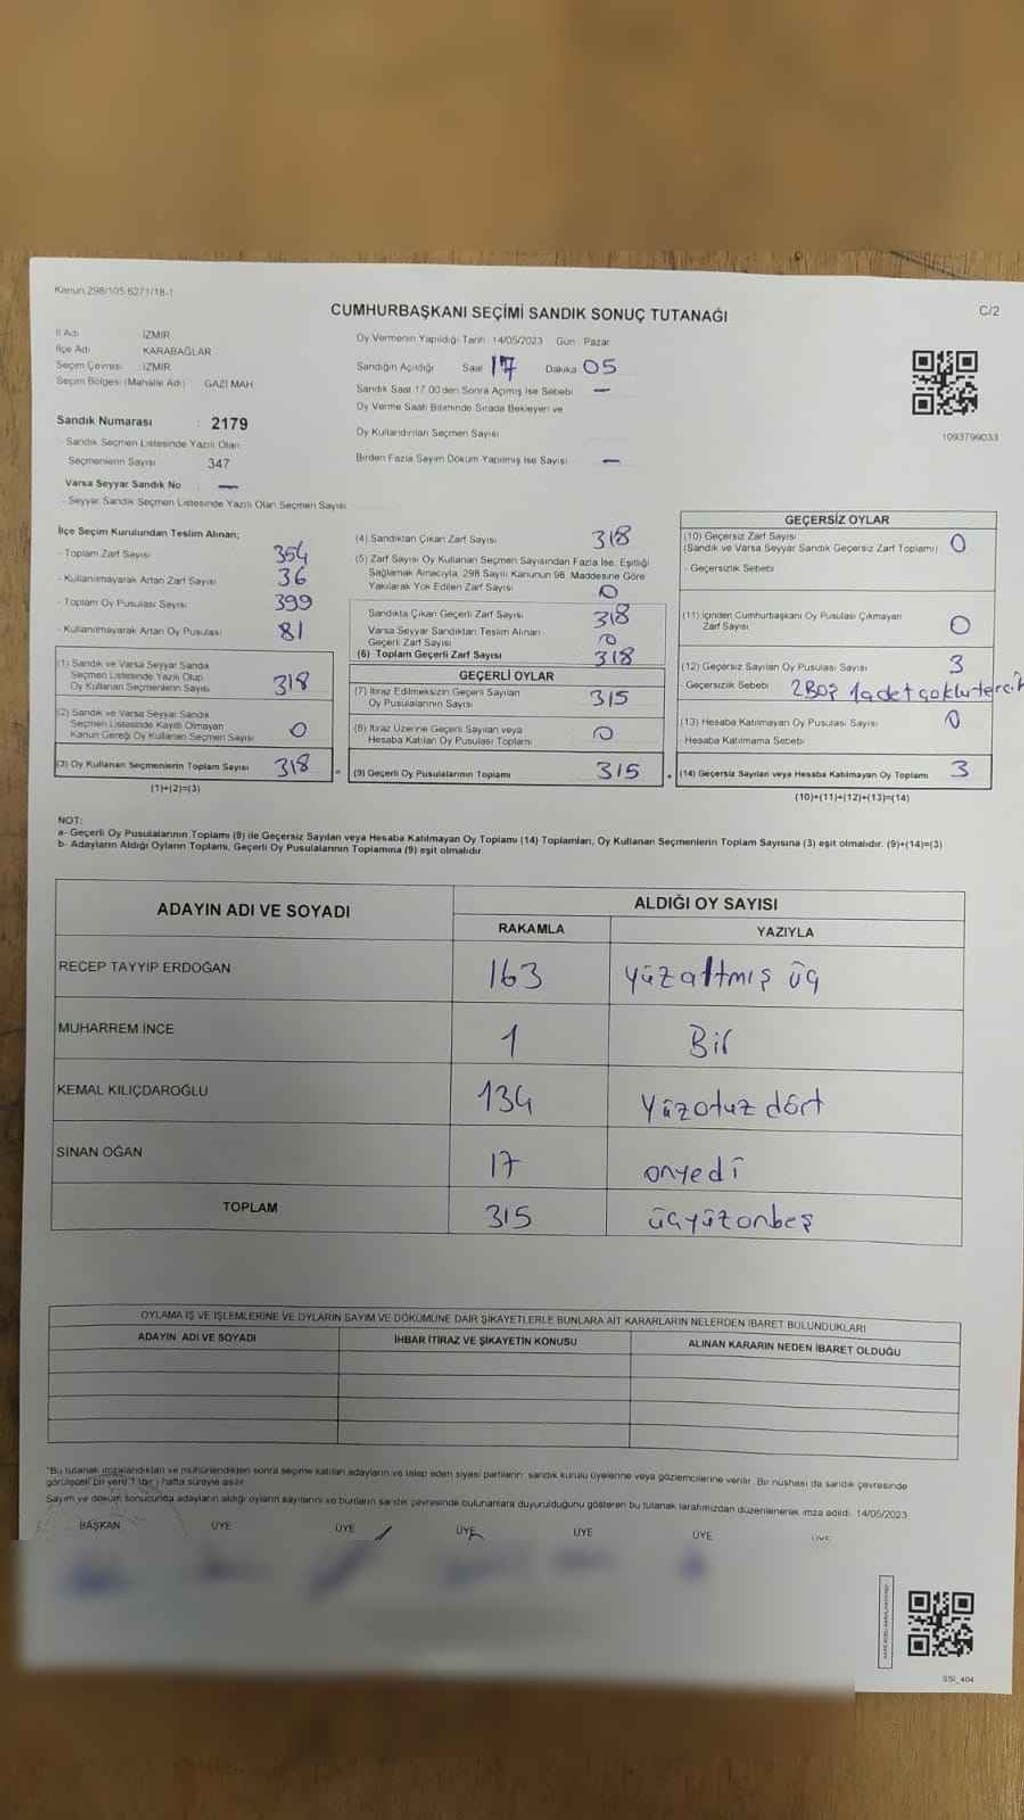 Kanun 298/105 6271/18-1
CUMHURBAŞKANI SEÇİMİ SANDIK SONUÇ TUTANAĞI
C/2
İl Adı İZMİR
İlçe Adı KARABAĞLAR
Seçim Çevresi İZMİR
Seçim Bölgesi (Mahalle Adı) GAZİ MAH
Sandık Numarası : 2179
- Sandık Seçmen Listesinde Yazılı Olan
Seçmenlerin Sayısı 347
Varsa Seyyar Sandık No —
- Seyyar Sandık Seçmen Listesinde Yazılı Olan Seçmen Sayısı
Oy Vermenin Yapıldığı Tarih : 14/05/2023 Gün : Pazar
Sandığın Açıldığı Saat 17 Dakika 05
Sandık Saat 17.00'den Sonra Açılmış İse Sebebi —
Oy Verme Saati Bitiminde Sırada Bekleyen ve
Oy Kullandırılan Seçmen Sayısı
Birden Fazla Sayım Döküm Yapılmış İse Sayısı —
1093799033
İlçe Seçim Kurulundan Teslim Alınan;
- Toplam Zarf Sayısı 354
- Kullanılmayarak Artan Zarf Sayısı 36
- Toplam Oy Pusulası Sayısı 399
- Kullanılmayarak Artan Oy Pusulası 81
(1) Sandık ve Varsa Seyyar Sandık
Seçmen Listesinde Yazılı Olup
Oy Kullanan Seçmenlerin Sayısı 318
(2) Sandık ve Varsa Seyyar Sandık
Seçmen Listesinde Kayıtlı Olmayan
Kanun Gereği Oy Kullanan Seçmen Sayısı 0
(3) Oy Kullanan Seçmenlerin Toplam Sayısı 318
(1)+(2)=(3)
(4) Sandıktan Çıkan Zarf Sayısı 318
(5) Zarf Sayısı Oy Kullanan Seçmen Sayısından Fazla İse, Eşitliği
Sağlamak Amacıyla, 298 Sayılı Kanunun 98. Maddesine Göre
Yakılarak Yok Edilen Zarf Sayısı 0
Sandıkta Çıkan Geçerli Zarf Sayısı 318
Varsa Seyyar Sandıktan Teslim Alınan
Geçerli Zarf Sayısı 0
(6) Toplam Geçerli Zarf Sayısı 318
GEÇERLİ OYLAR
(7) İtiraz Edilmeksizin Geçerli Sayılan
Oy Pusulalarının Sayısı 315
(8) İtiraz Üzerine Geçerli Sayılan veya
Hesaba Katılan Oy Pusulası Toplamı 0
(9) Geçerli Oy Pusulalarının Toplamı 315
GEÇERSİZ OYLAR
(10) Geçersiz Zarf Sayısı
(Sandık ve Varsa Seyyar Sandık Geçersiz Zarf Toplamı) 0
- Geçersizlik Sebebi
(11) İçinden Cumhurbaşkanı Oy Pusulası Çıkmayan
Zarf Sayısı 0
(12) Geçersiz Sayılan Oy Pusulası Sayısı 3
- Geçersizlik Sebebi 2Boş 1adet çoklu tercih
(13) Hesaba Katılmayan Oy Pusulası Sayısı 0
Hesaba Katılmama Sebebi
(14) Geçersiz Sayılan veya Hesaba Katılmayan Oy Toplamı 3
(10)+(11)+(12)+(13)=(14)
NOT:
a- Geçerli Oy Pusulalarının Toplamı (9) ile Geçersiz Sayılan veya Hesaba Katılmayan Oy Toplamı (14) Toplamları, Oy Kullanan Seçmenlerin Toplam Sayısına (3) eşit olmalıdır. (9)+(14)=(3)
b- Adayların Aldığı Oyların Toplamı, Geçerli Oy Pusulalarının Toplamına (9) eşit olmalıdır.
ADAYIN ADI VE SOYADI ALDIĞI OY SAYISI
RAKAMLA YAZIYLA
RECEP TAYYİP ERDOĞAN 163 yüzaltmış üç
MUHARREM İNCE 1 Bir
KEMAL KILIÇDAROĞLU 134 Yüzotuz dört
SİNAN OĞAN 17 onyedi
TOPLAM 315 üçyüzonbeş
OYLAMA İŞ VE İŞLEMLERİNE VE OYLARIN SAYIM VE DÖKÜMÜNE DAİR ŞİKAYETLERLE BUNLARA AİT KARARLARIN NELERDEN İBARET BULUNDUKLARI
ADAYIN ADI VE SOYADI İHBAR İTİRAZ VE ŞİKAYETİN KONUSU ALINAN KARARIN NEDEN İBARET OLDUĞU
"Bu tutanak imzalandıktan ve mühürlendikten sonra seçime katılan adayların ve talep eden siyasi partilerin sandık kurulu üyelerine veya gözlemcilerine verilir. Bir nüshası da sandık çevresinde
görülecek bir yere 1 (bir) hafta süreyle asılır.
Sayım ve döküm sonucunda adayların aldığı oyların sayılarını ve bunların sandık çevresinde bulunanlara duyurulduğunu gösteren bu tutanak tarafımızdan düzenlenerek imza edildi. 14/05/2023
BAŞKAN ÜYE ÜYE ÜYE ÜYE ÜYE ÜYE
SSI_404